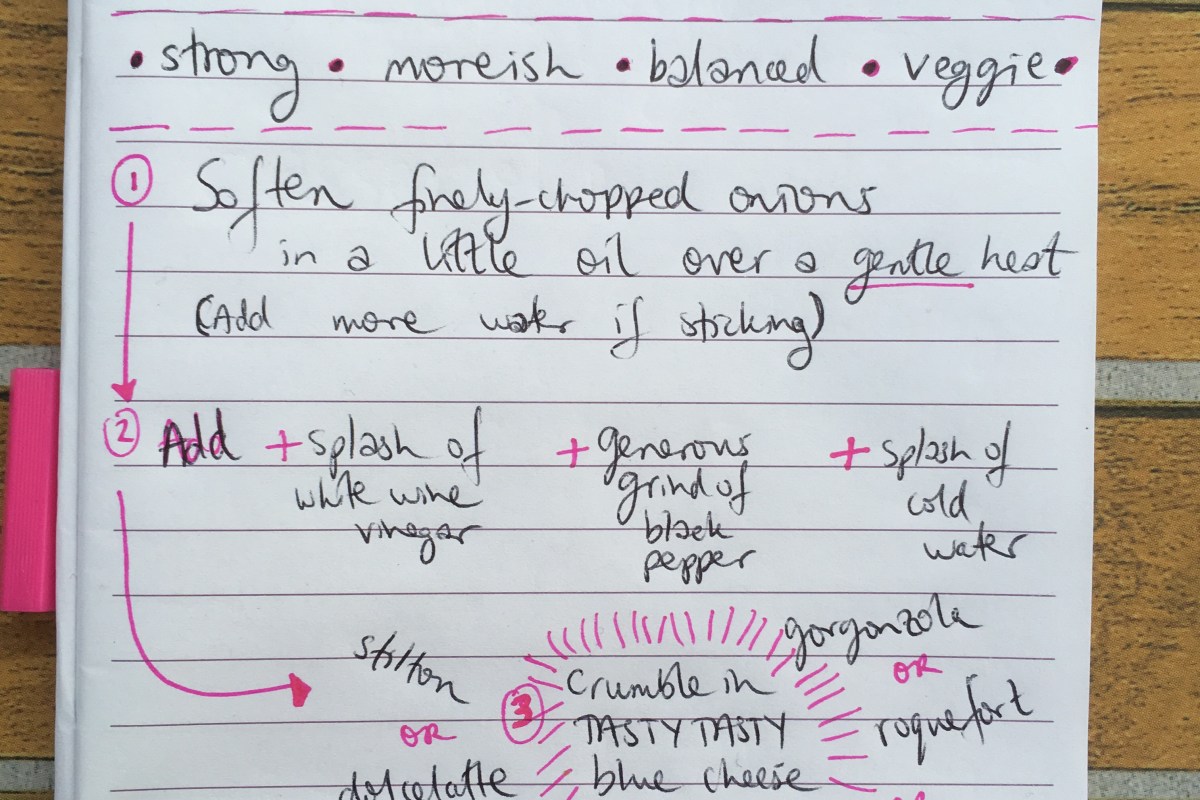 • strong • moreish • balanced • veggie •
1 Soften finely-chopped onions
in a little oil over a gentle heat
(Add more water if sticking)
2 Add + splash of white wine vinegar
+ generous grind of black pepper
+ splash of cold water
3 Crumble in
TASTY TASTY
blue cheese
stilton
OR
dolcelatte
gorgonzola
OR
roquefort